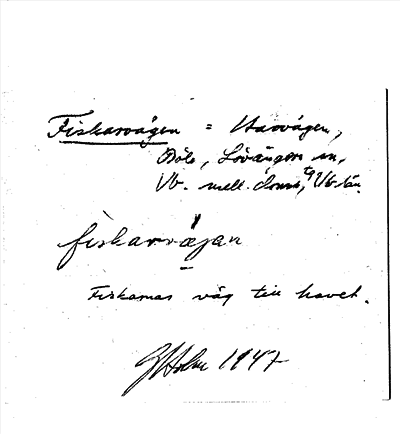 Fiskarvägen = Havvägen,
Böle, Lövångers sn,
Vb. mell. doms, Vb. län.
fiskarvägan
Fiskarnas väg till havet.
G Holm 1947